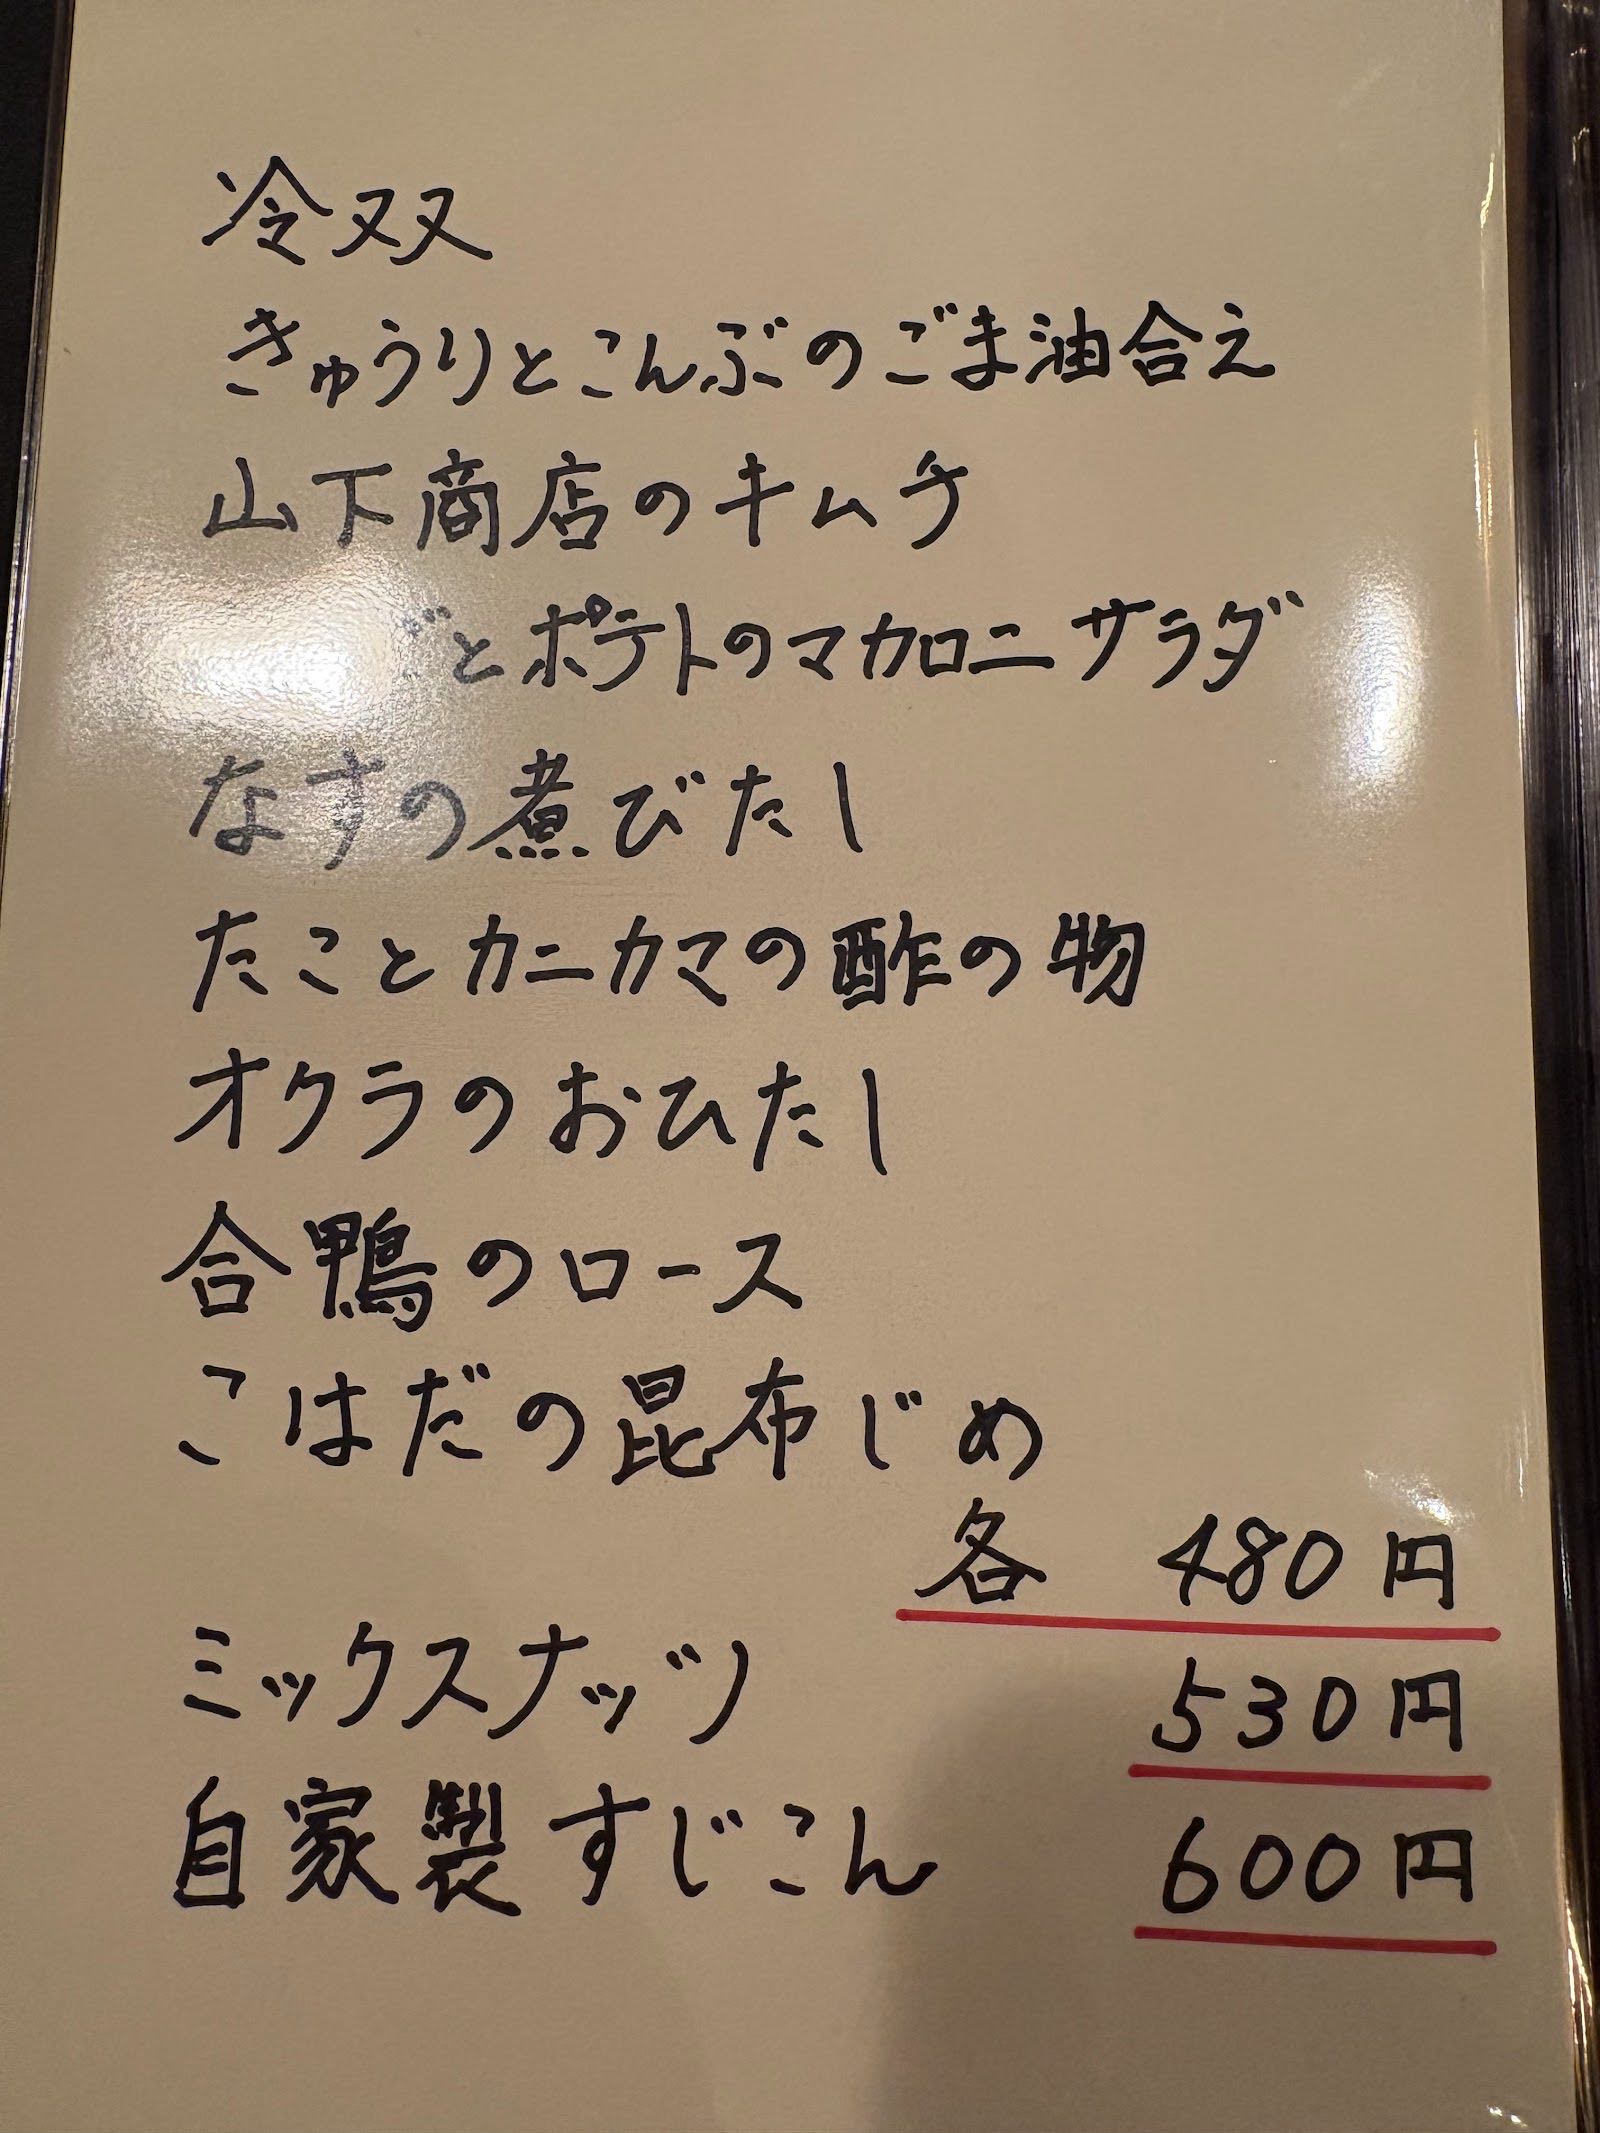 冷双
きゅうりとこんぶのごま油合え
山下商店のキムチ
とポテトのマカロニサラダ
なすの煮びたし
たことカニカマの酢の物
オクラのおひたし
合鴨のロース
こはだの昆布じめ
各 480円
ミックスナッツ 530円
自家製すじこん 600円